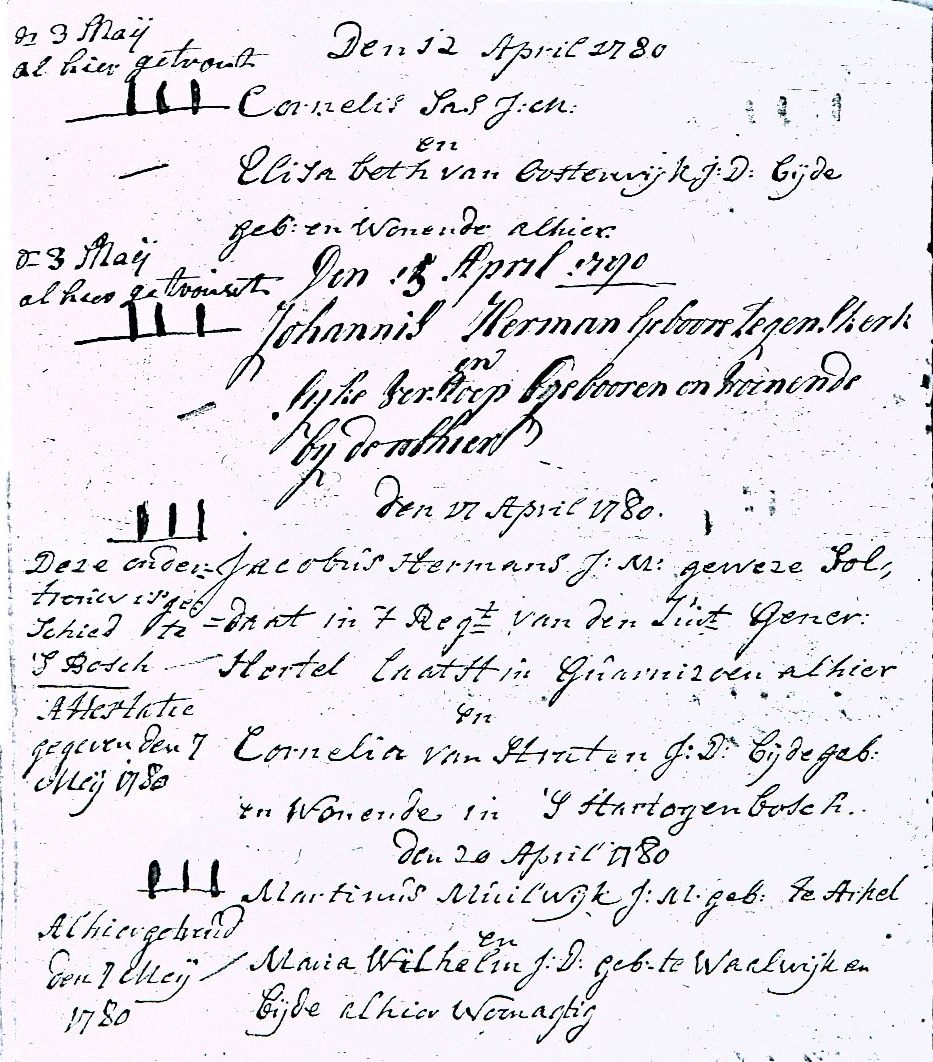 dn 3 Maij
al hier getrout
Den 12 April 1780
Cornelis Sas J:M:
en
Elisabeth van Oosterwijk J:D: bijde
geb: en Wonende alhier.
dn 3 Maij
al hier getrouwt
Den 15 April 1790
Johannis Herman geboore tegenskerk
en
Sijke Verstoep geboren en woinende
bij de alhier
den 17 April 1780.
Deze onder=
trouw is ge
Schied te
'S Bosch
Attestatie
gegeven den 7
Meij 1780
Jacobus Hermans J:M: geweze Sol,
=daat in 't Regt van den Luit Gener:
Hertel laatst in Guarnizoen alhier
en
Cornelia van Straten J:D: bijde geb:
en Wonende in 'S Hartogenbosch.
den 20 April 1780
Martinus Muilwijk J:M: geb: te Arkel
en
Maria Wilhelm J:D: geb: te Waalwijk en
bijde alhier Woenagtig
Alhier getrud
den 7 Meij
1780